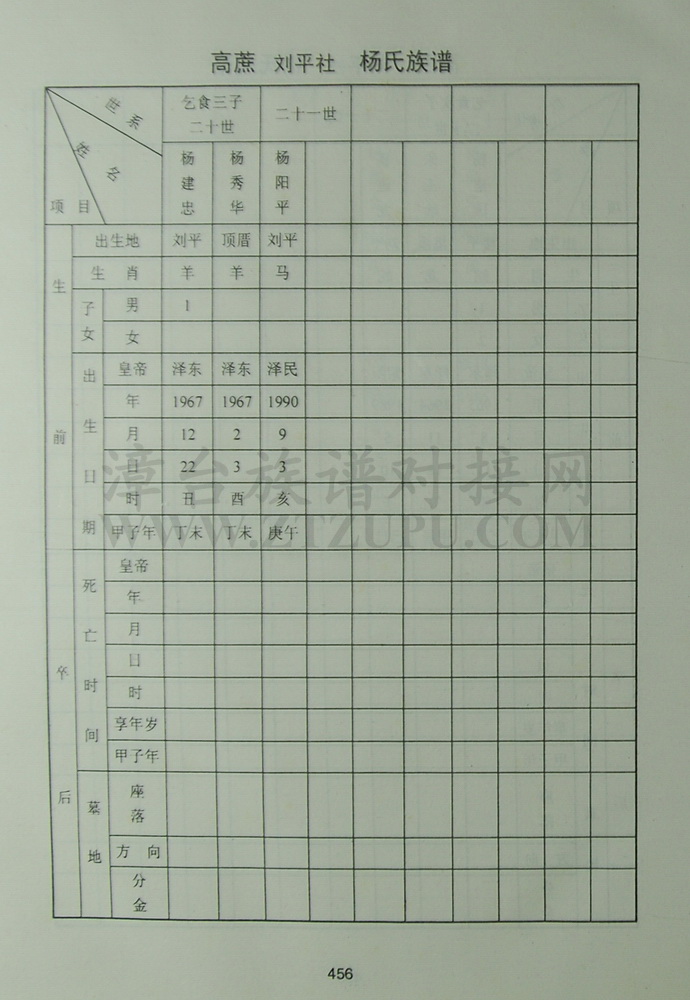 高蔗 刘平社 杨氏族谱
世系 乞食三子 二十世 二十一世
姓名 杨建忠 杨秀华 杨阳平
项目
生前 出生地 刘平 顶厝 刘平
生肖 羊 羊 马
子女 男 1
女
出生日期 皇帝 泽东 泽东 泽民
年 1967 1967 1990
月 12 2 9
日 22 3 3
时 丑 酉 亥
甲子年 丁未 丁未 庚午
卒后 死亡时间 皇帝
年
月
日
时
享年岁
甲子年
墓地 座落
方向
分金
漳台族谱对接网
WWW.ZTZUPU.COM
456